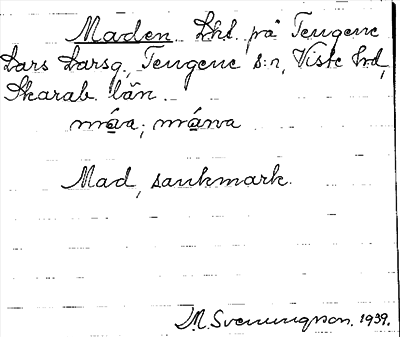 Maden. Lhl. på Tengene
Lars Larsg., Tengene s:n, Viste hrd,
Skarab. län.
máva; mánva
Mad, sankmark.
M. Svenungson. 1939.